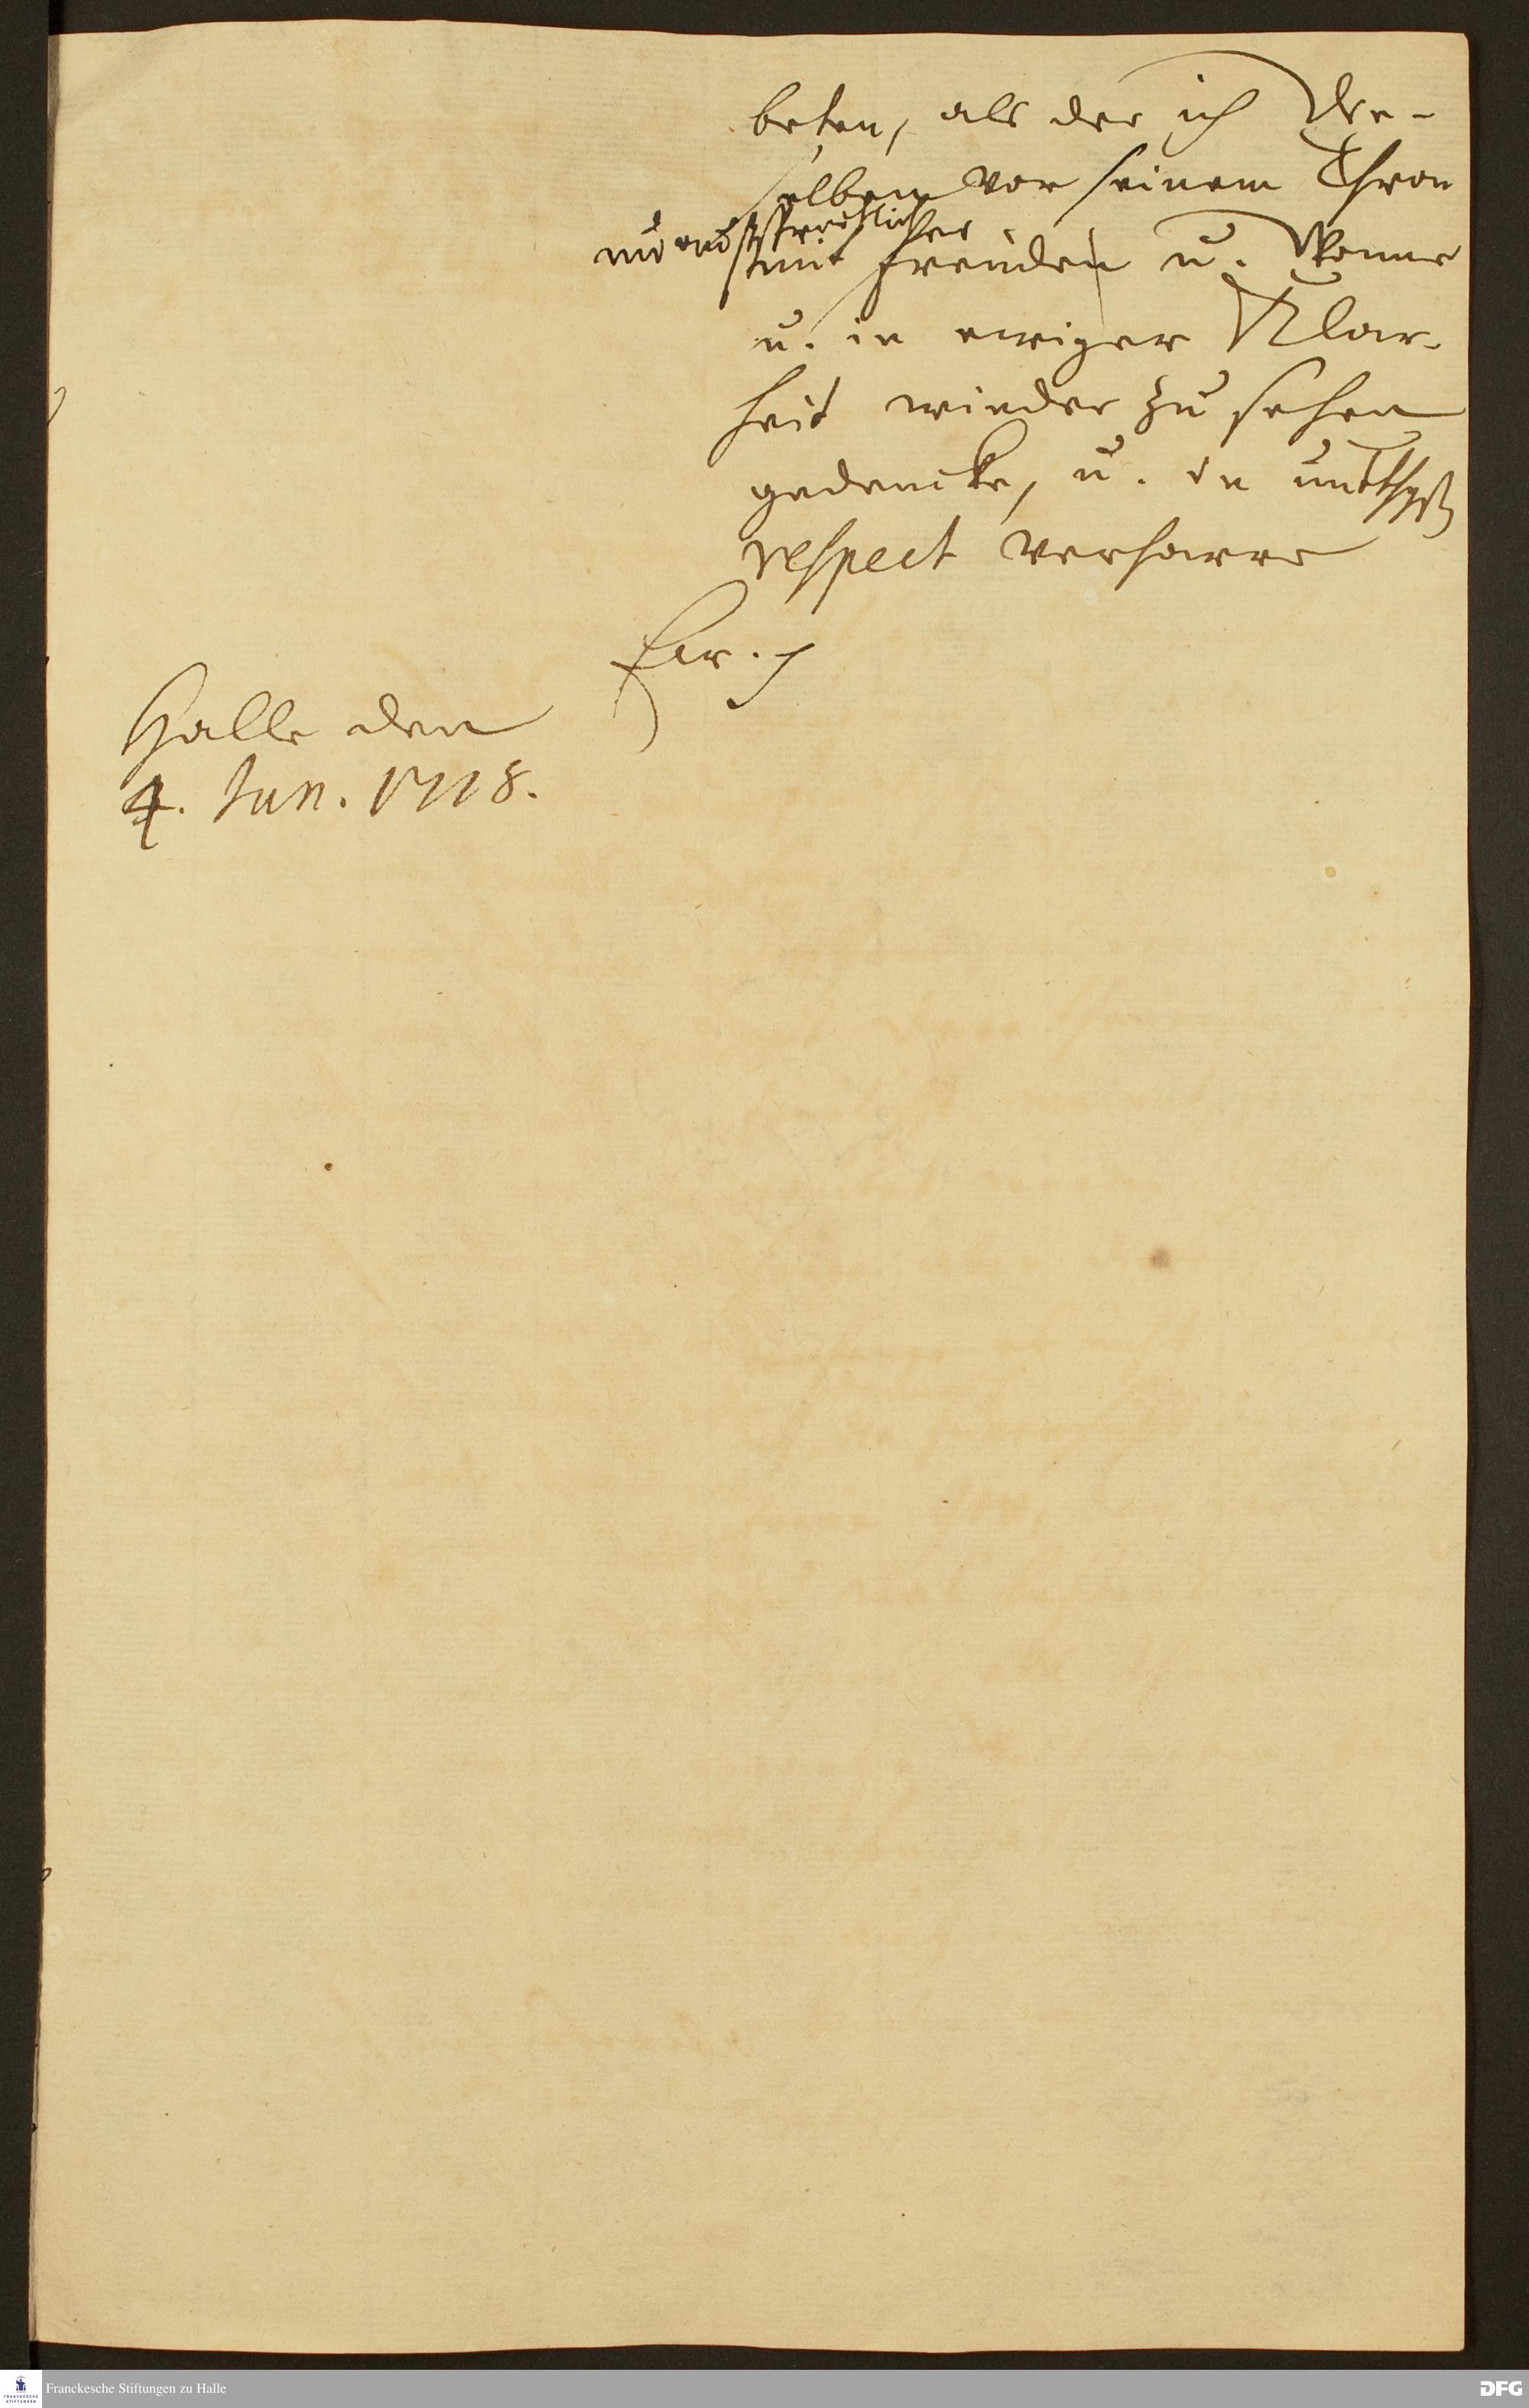 beten, als der ich Die-
selben vor seinem Thron
mit unaussprechlicher
mit Freuden u. Wonne
u. in ewiger Klar-
heit wieder zu sehen
gedencke, u. in
respect verharre
Ew. p
Halle den
4. Jun. 1718.
Franckesche Stiftungen zu Halle
DFG